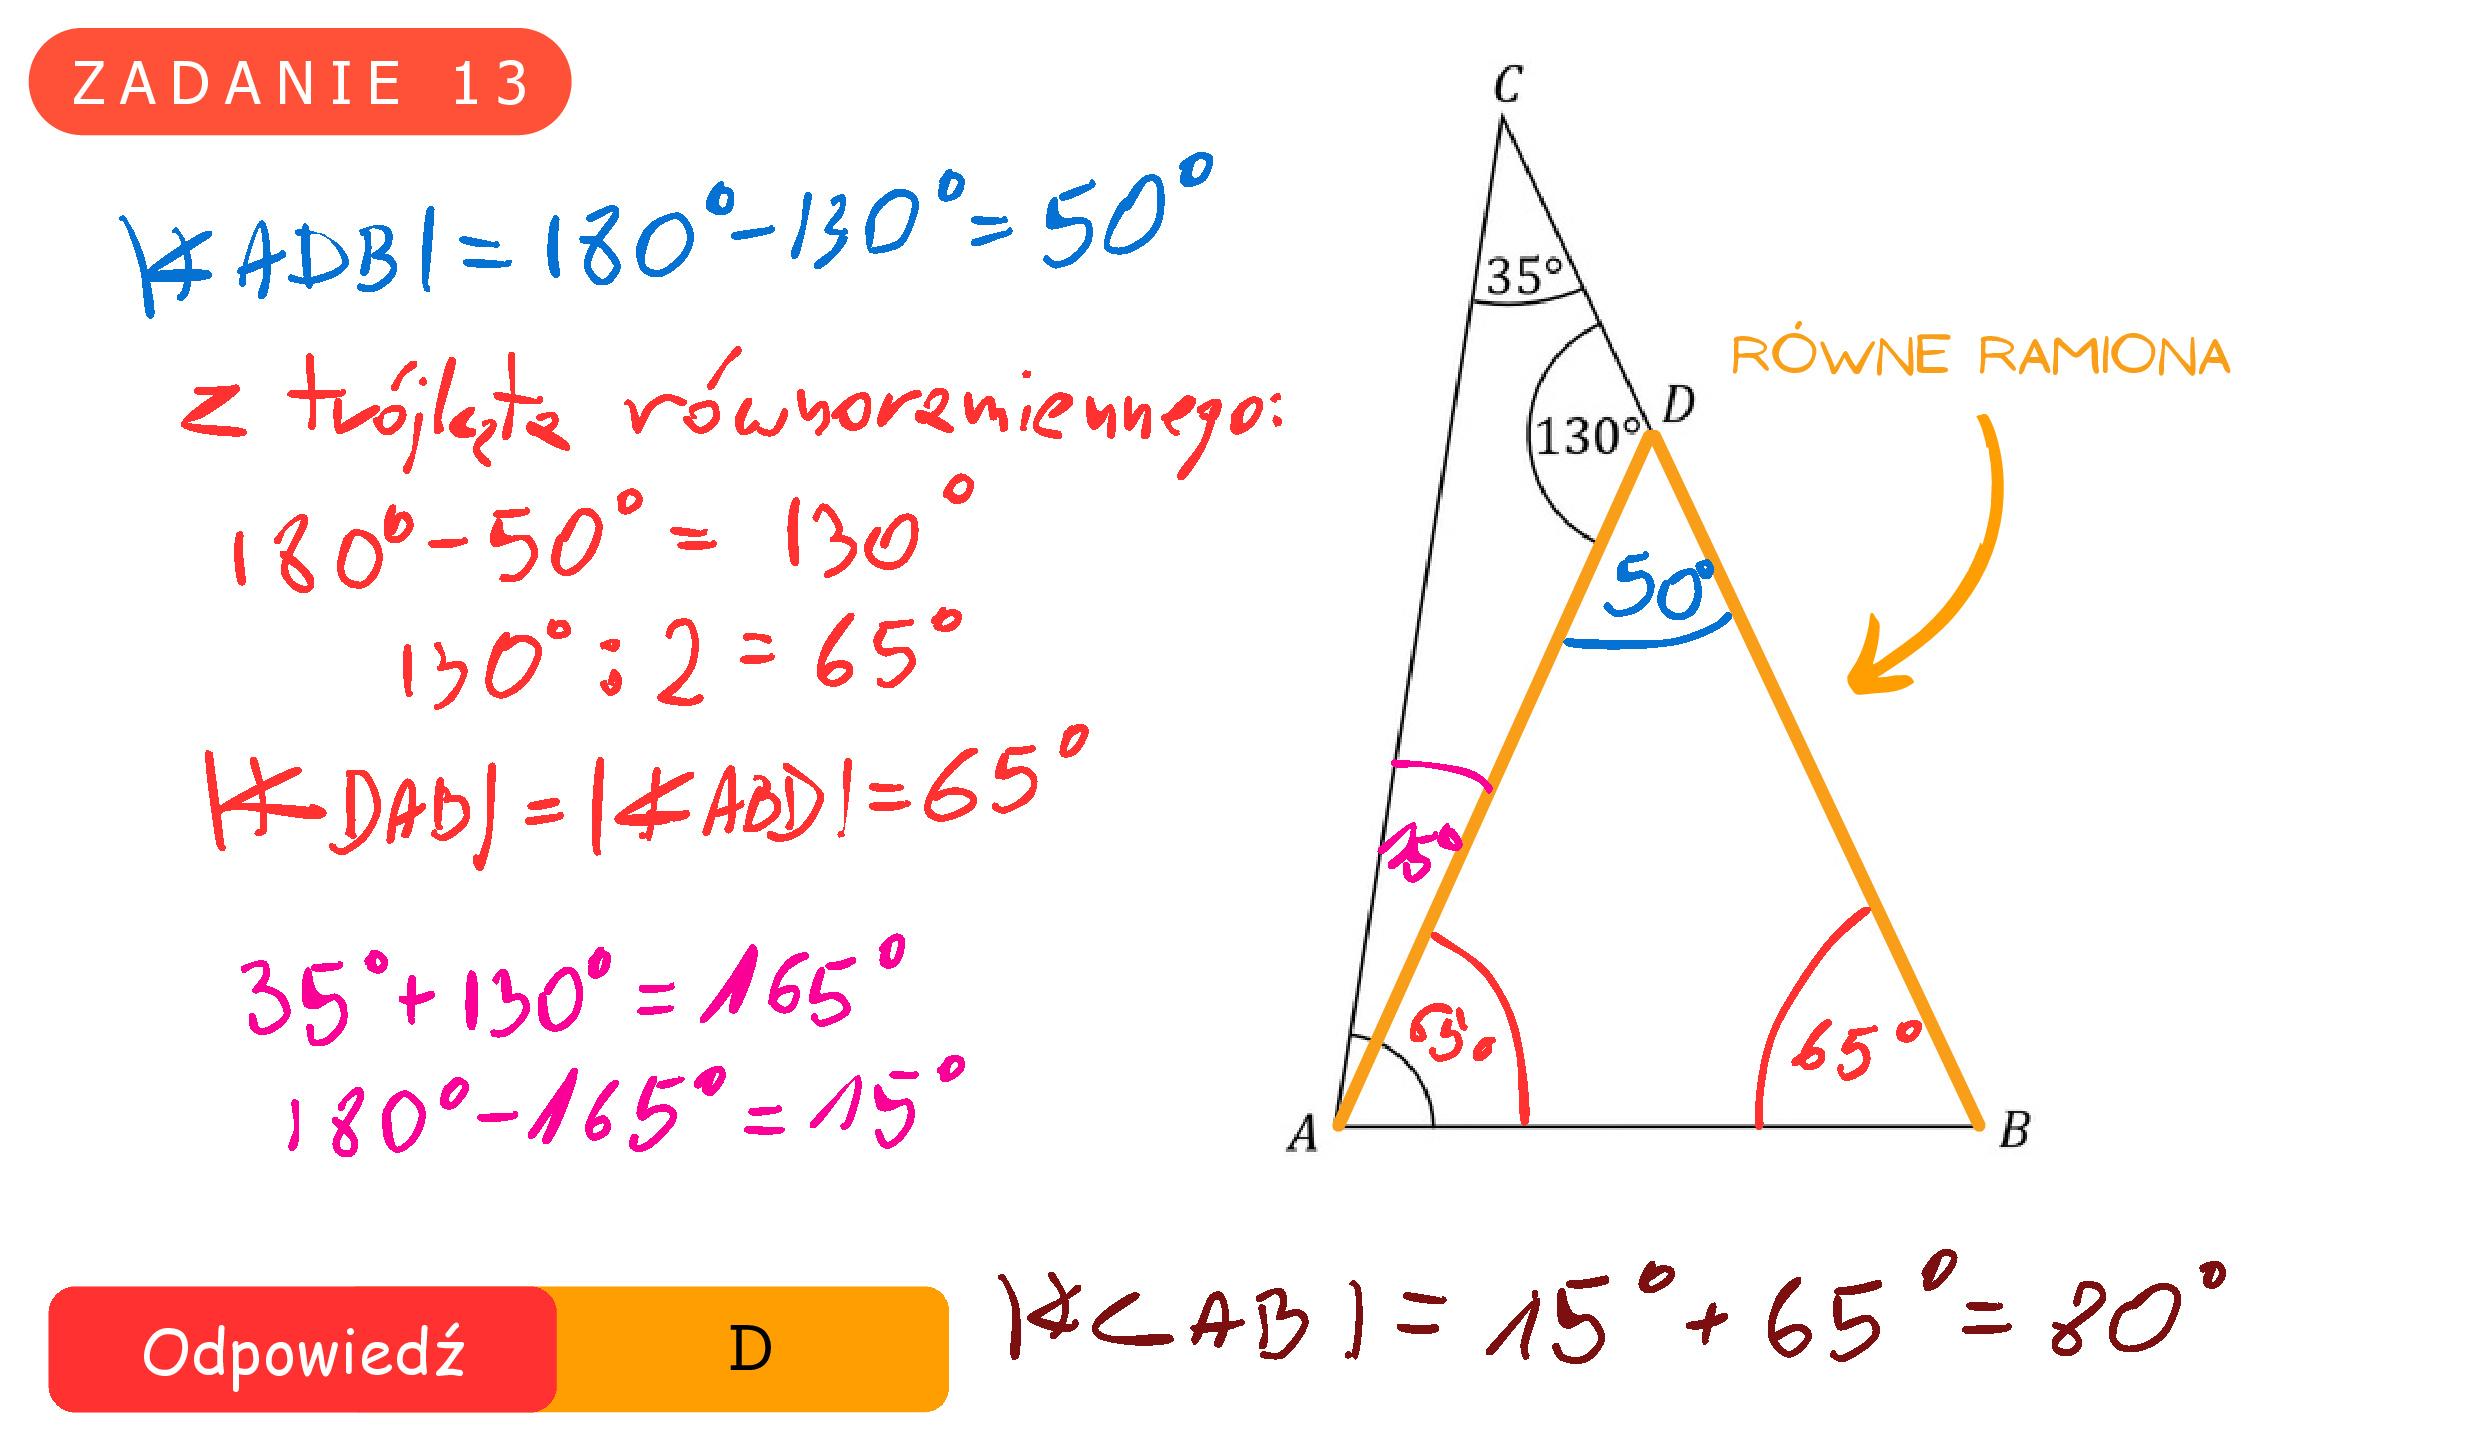 ZADANIE 13
|∢ADB| = 180° - 130° = 50°
z trójkąta równoramiennego:
180° - 50° = 130°
130° : 2 = 65°
|∢DAB| = |∢ABD| = 65°
35° + 130° = 165°
180° - 165° = 15°
Odpowiedź D
|∢CAB| = 15° + 65° = 80°
C
35°
RÓWNE RAMIONA
D
130°
50°
15°
65°
65°
A
B